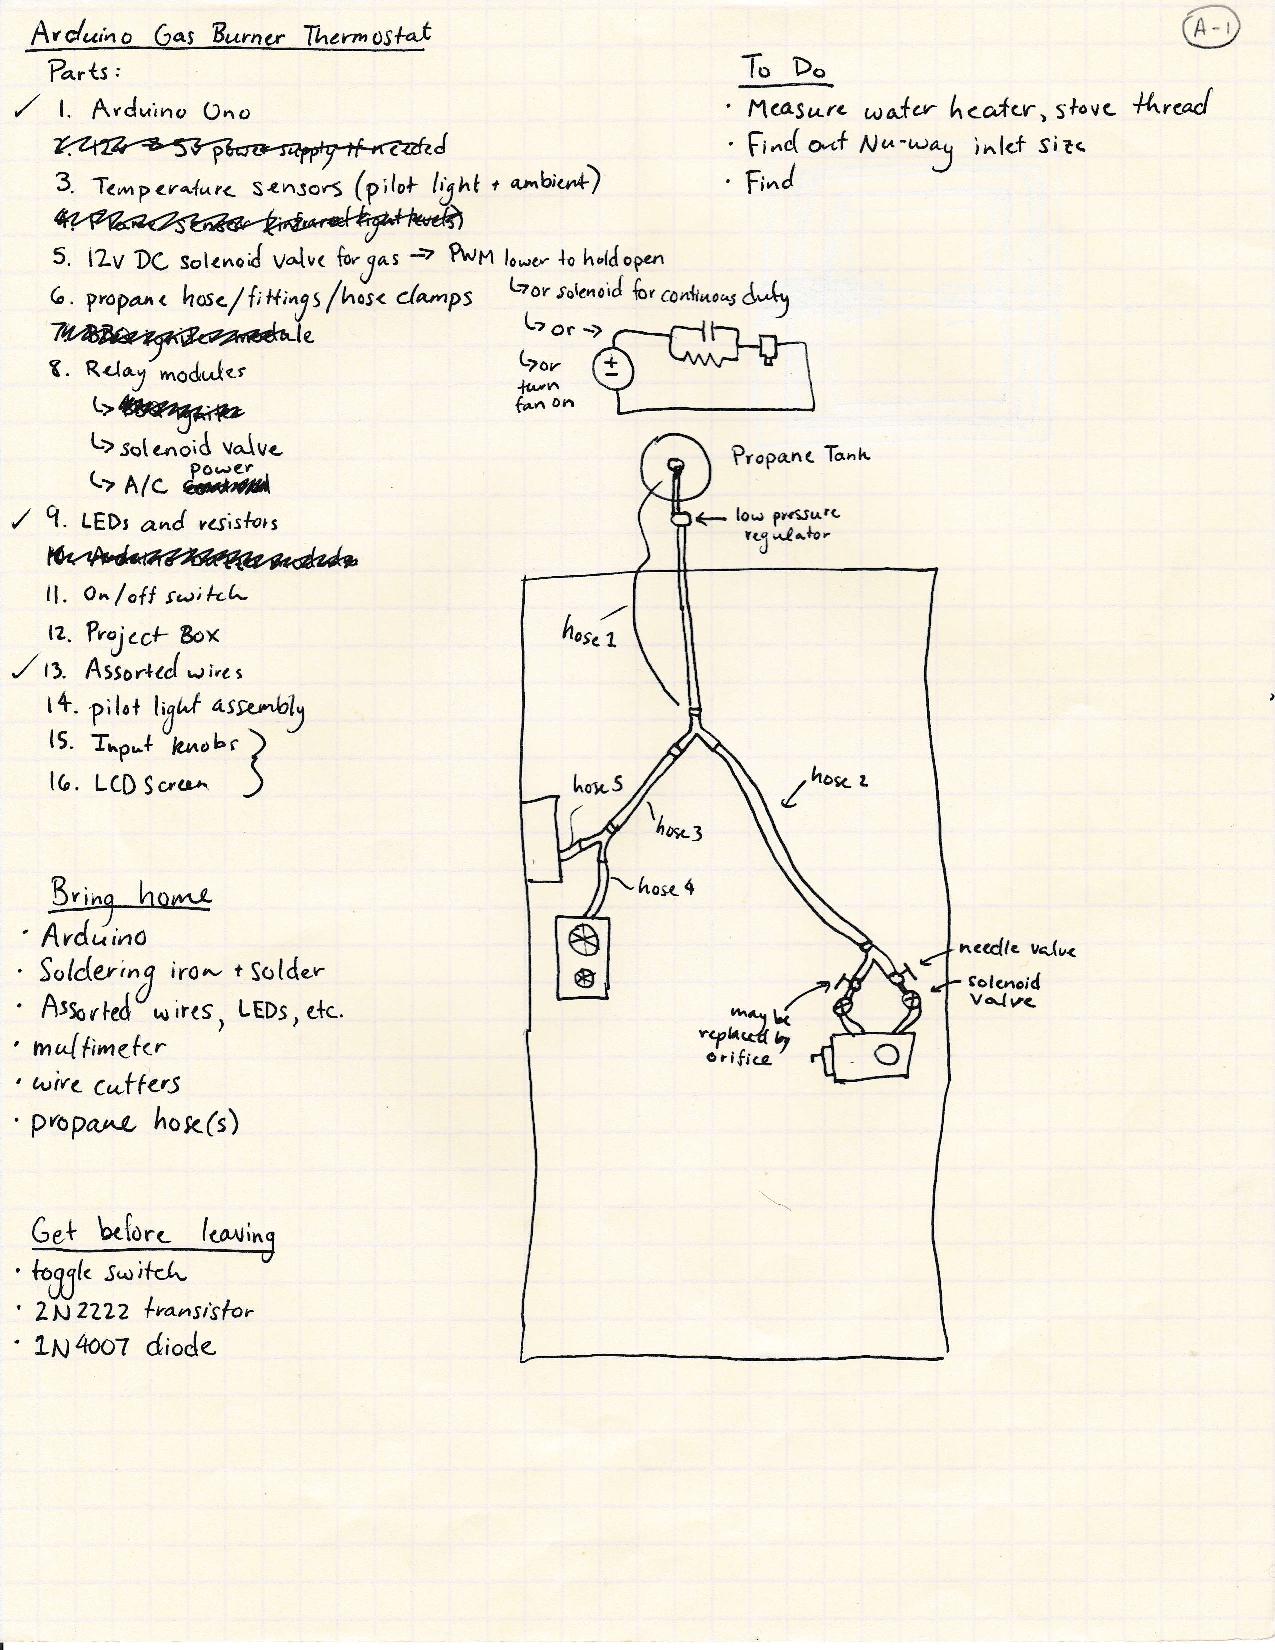 A-1
Arduino Gas Burner Thermostat
Parts:
✓ 1. Arduino Uno
2. 12v & 5v power supply if needed
3. Temperature sensors (pilot light + ambient)
4. Flame sensor (infrared light levels)
5. 12v DC solenoid valve for gas → PWM lower to hold open
↳ or solenoid for continuous duty
↳ or →
↳ or
turn
fan on
+
−
6. propane hose/fittings/hose clamps
7. BBQ igniter module
8. Relay modules
↳ BBQ igniter
↳ solenoid valve
power
↳ A/C
✓ 9. LEDs and resistors
10. Arduino module
11. On/off switch
12. Project Box
✓ 13. Assorted wires
14. pilot light assembly
15. Input knobs
16. LCD Screen
Bring home
· Arduino
· Soldering iron + solder
· Assorted wires, LEDs, etc.
· multimeter
· wire cutters
· propane hose(s)
Get before leaving
· toggle switch
· 2N2222 transistor
· 1N4007 diode
To Do
· Measure water heater, stove thread
· Find out Nu-way inlet size
· Find
Propane Tank
low pressure
regulator
hose 1
hose 2
hose 5
hose 3
hose 4
needle valve
solenoid
valve
may be
replaced by
orifice